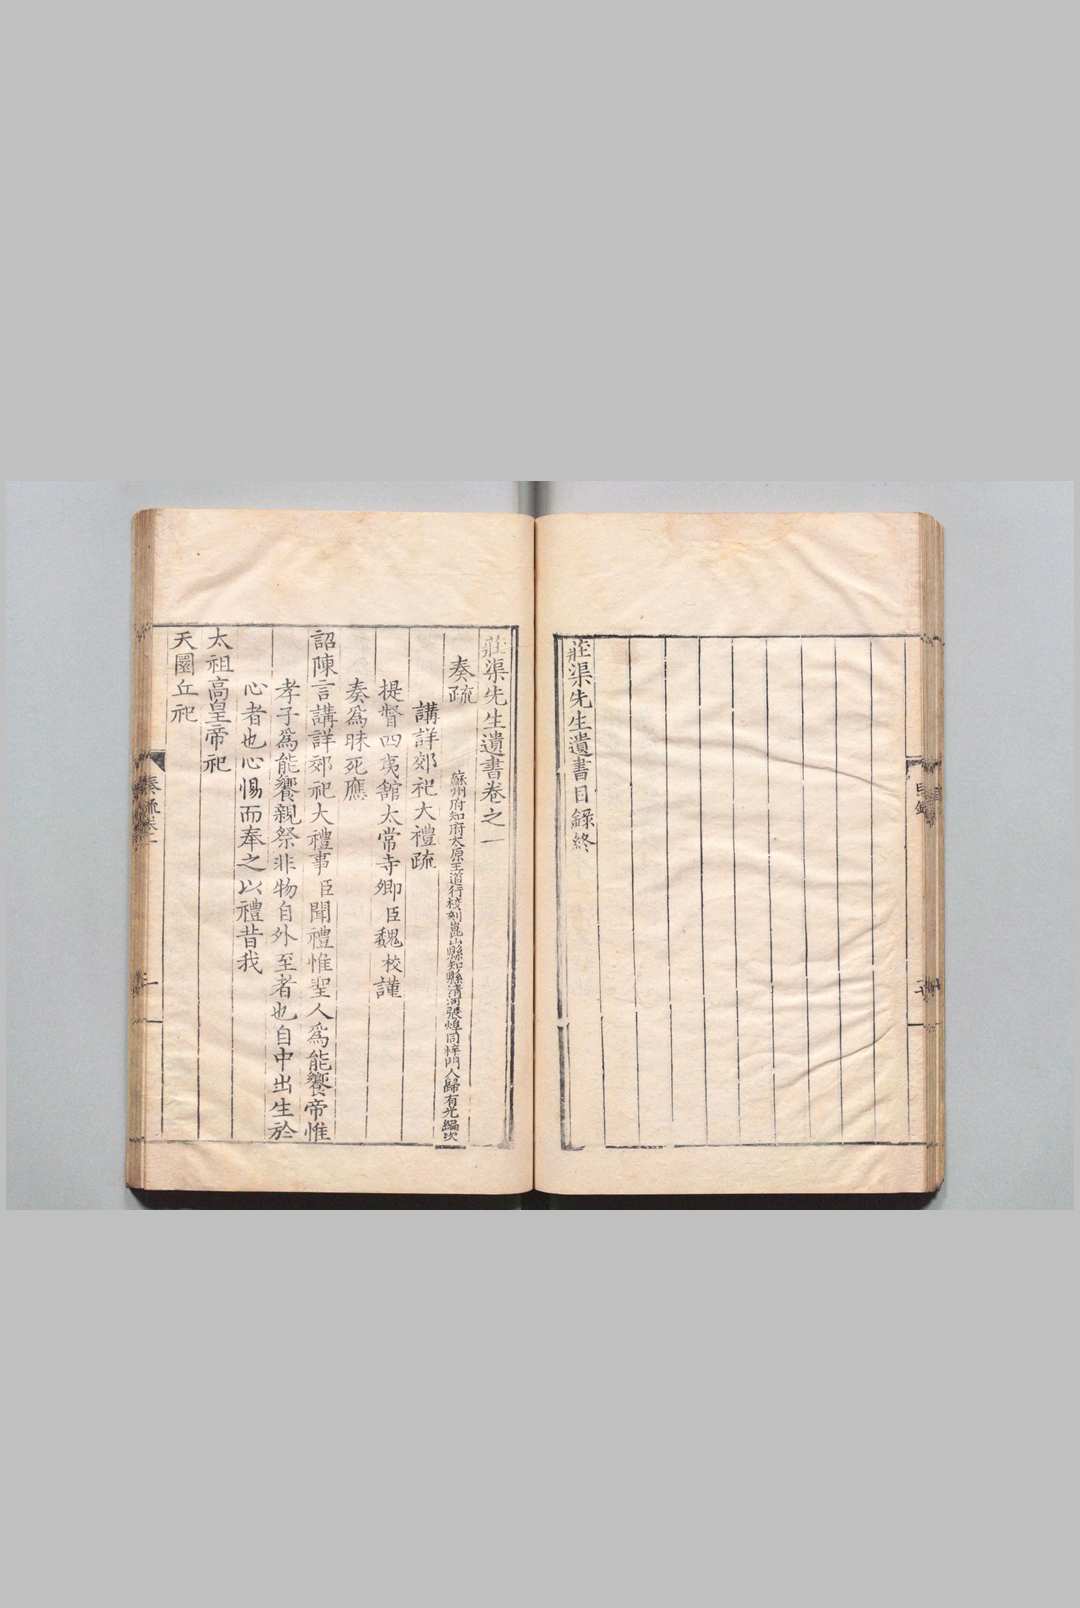 莊渠先生遺書目錄終
目錄
莊渠先生遺書卷之一
蘇州府知府太原王道行校刻崑山縣知縣清河張焯同梓門人歸有光編次
奏疏
講詳郊祀大禮疏
提督四夷舘太常寺卿臣魏校謹
奏爲昧死應
詔陳言講詳郊祀大禮事臣聞禮惟聖人爲能饗帝惟
孝子爲能饗親祭非物自外至者也自中出生於
心者也心惕而奉之以禮昔我
太祖高皇帝祀
天圜丘祀
奏疏卷一